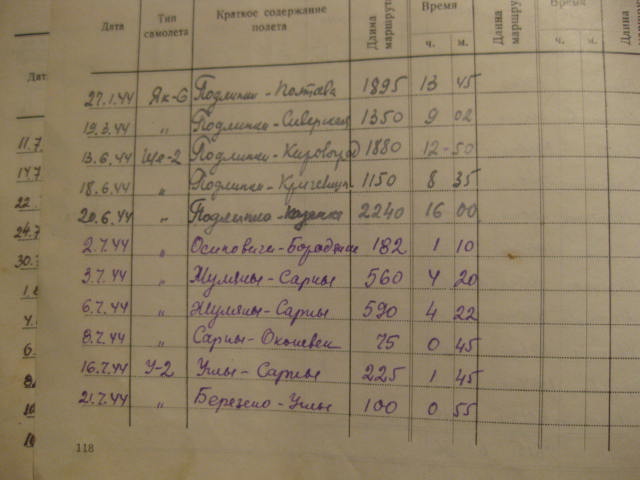 Дата Тип самолета Краткое содержание полета Длина маршрута Время ч. м. Длина маршрут Время ч. м. Длина
27.1.44 Як-6 Подлипки-Полтава 1895 13 45
19.3.44 " Подлипки-Сиверская 1350 9 02
13.6.44 Ще-2 Подлипки-Кировоград 1880 12-50
18.6.44 " Подлипки- 1150 8 35
20.6.44 " 2240 16 00
2.7.44 " Осиповичи- 182 1 10
3.7.44 " Жуляны-Сарны 560 4 20
6.7.44 " Жуляны-Сарны 590 4 22
8.7.44 " Сарны- 75 0 45
16.7.44 У-2 Углы-Сарны 225 1 45
21.7.44 " Березно-Углы 100 0 55
118